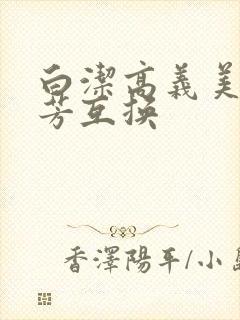 白潔高義美
芳互换
香澤陽平/小島